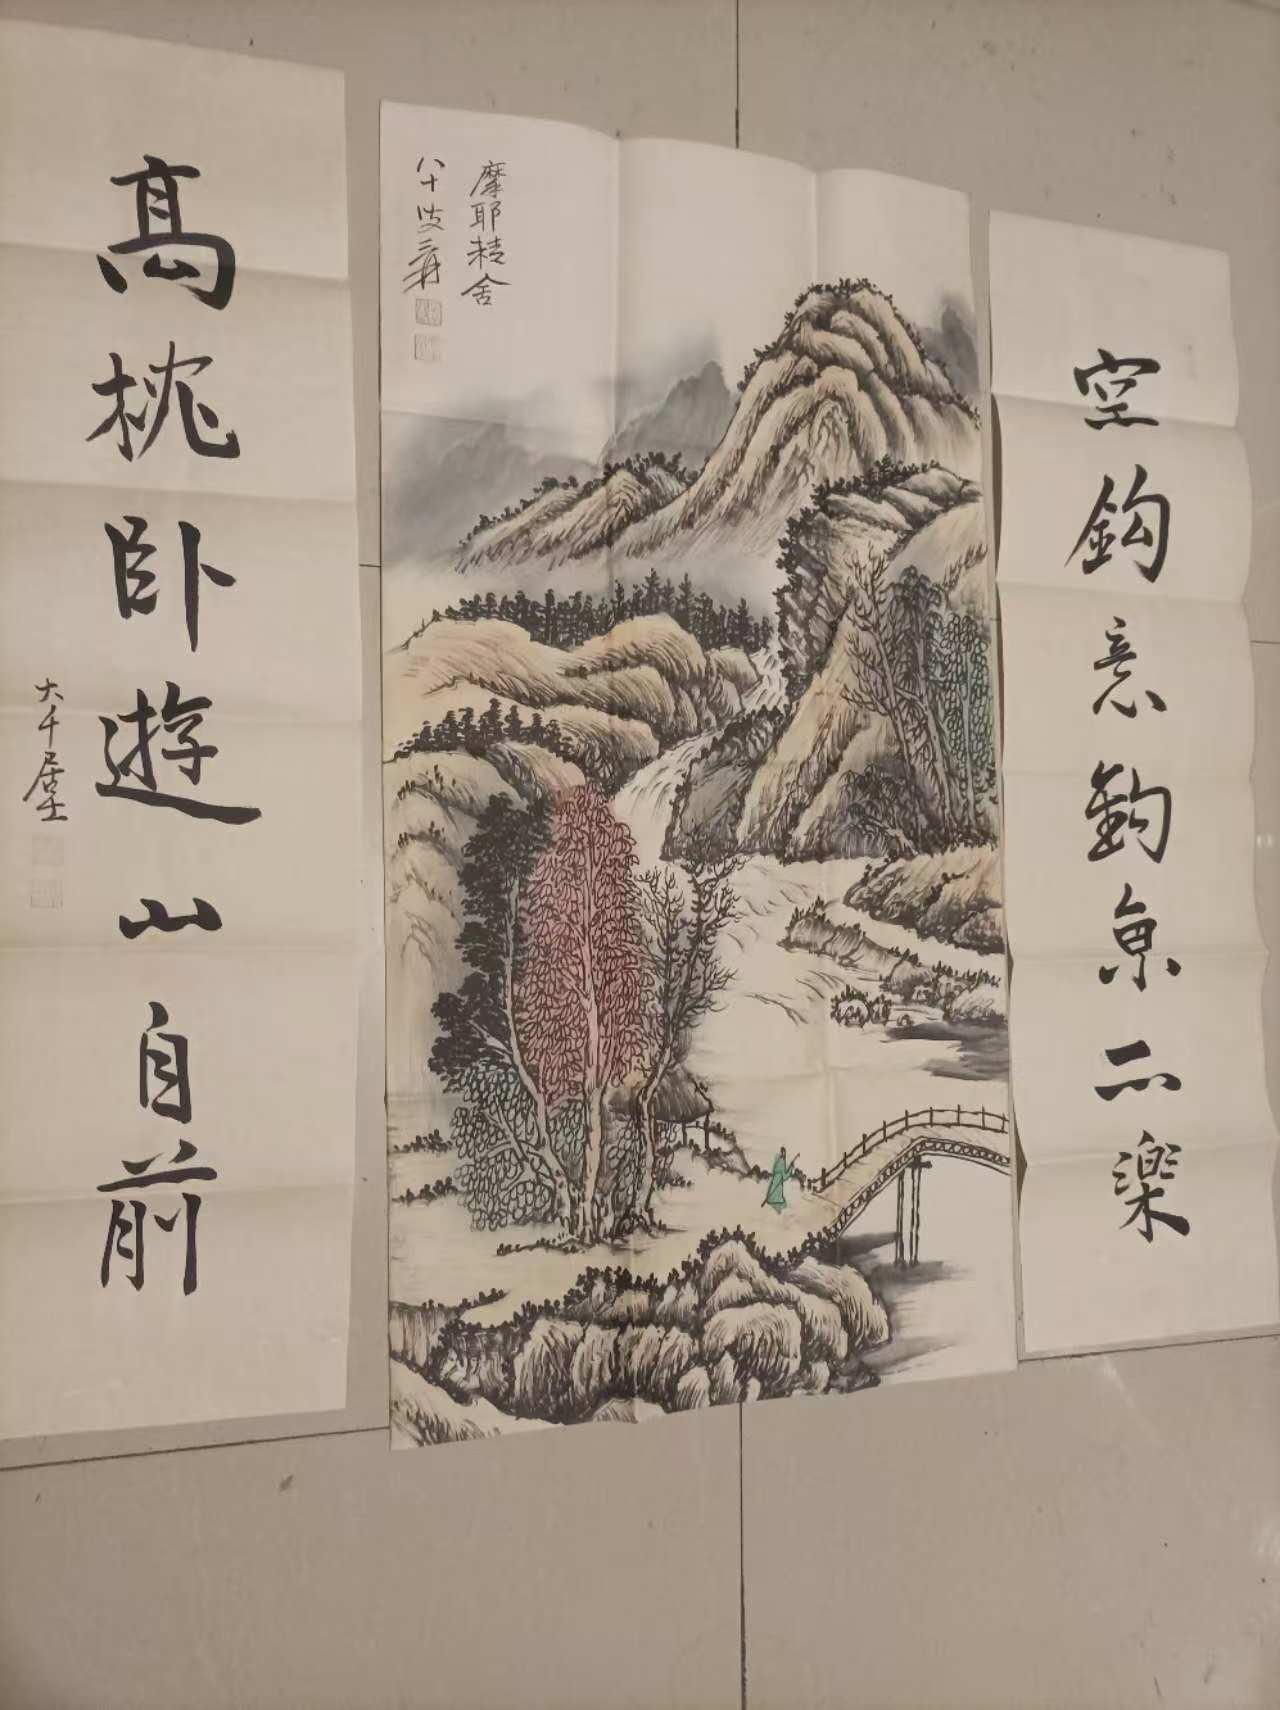 空鈎意釣魚亦樂
摩耶精舍
八十叟爰
高枕卧遊山自前
大千居士